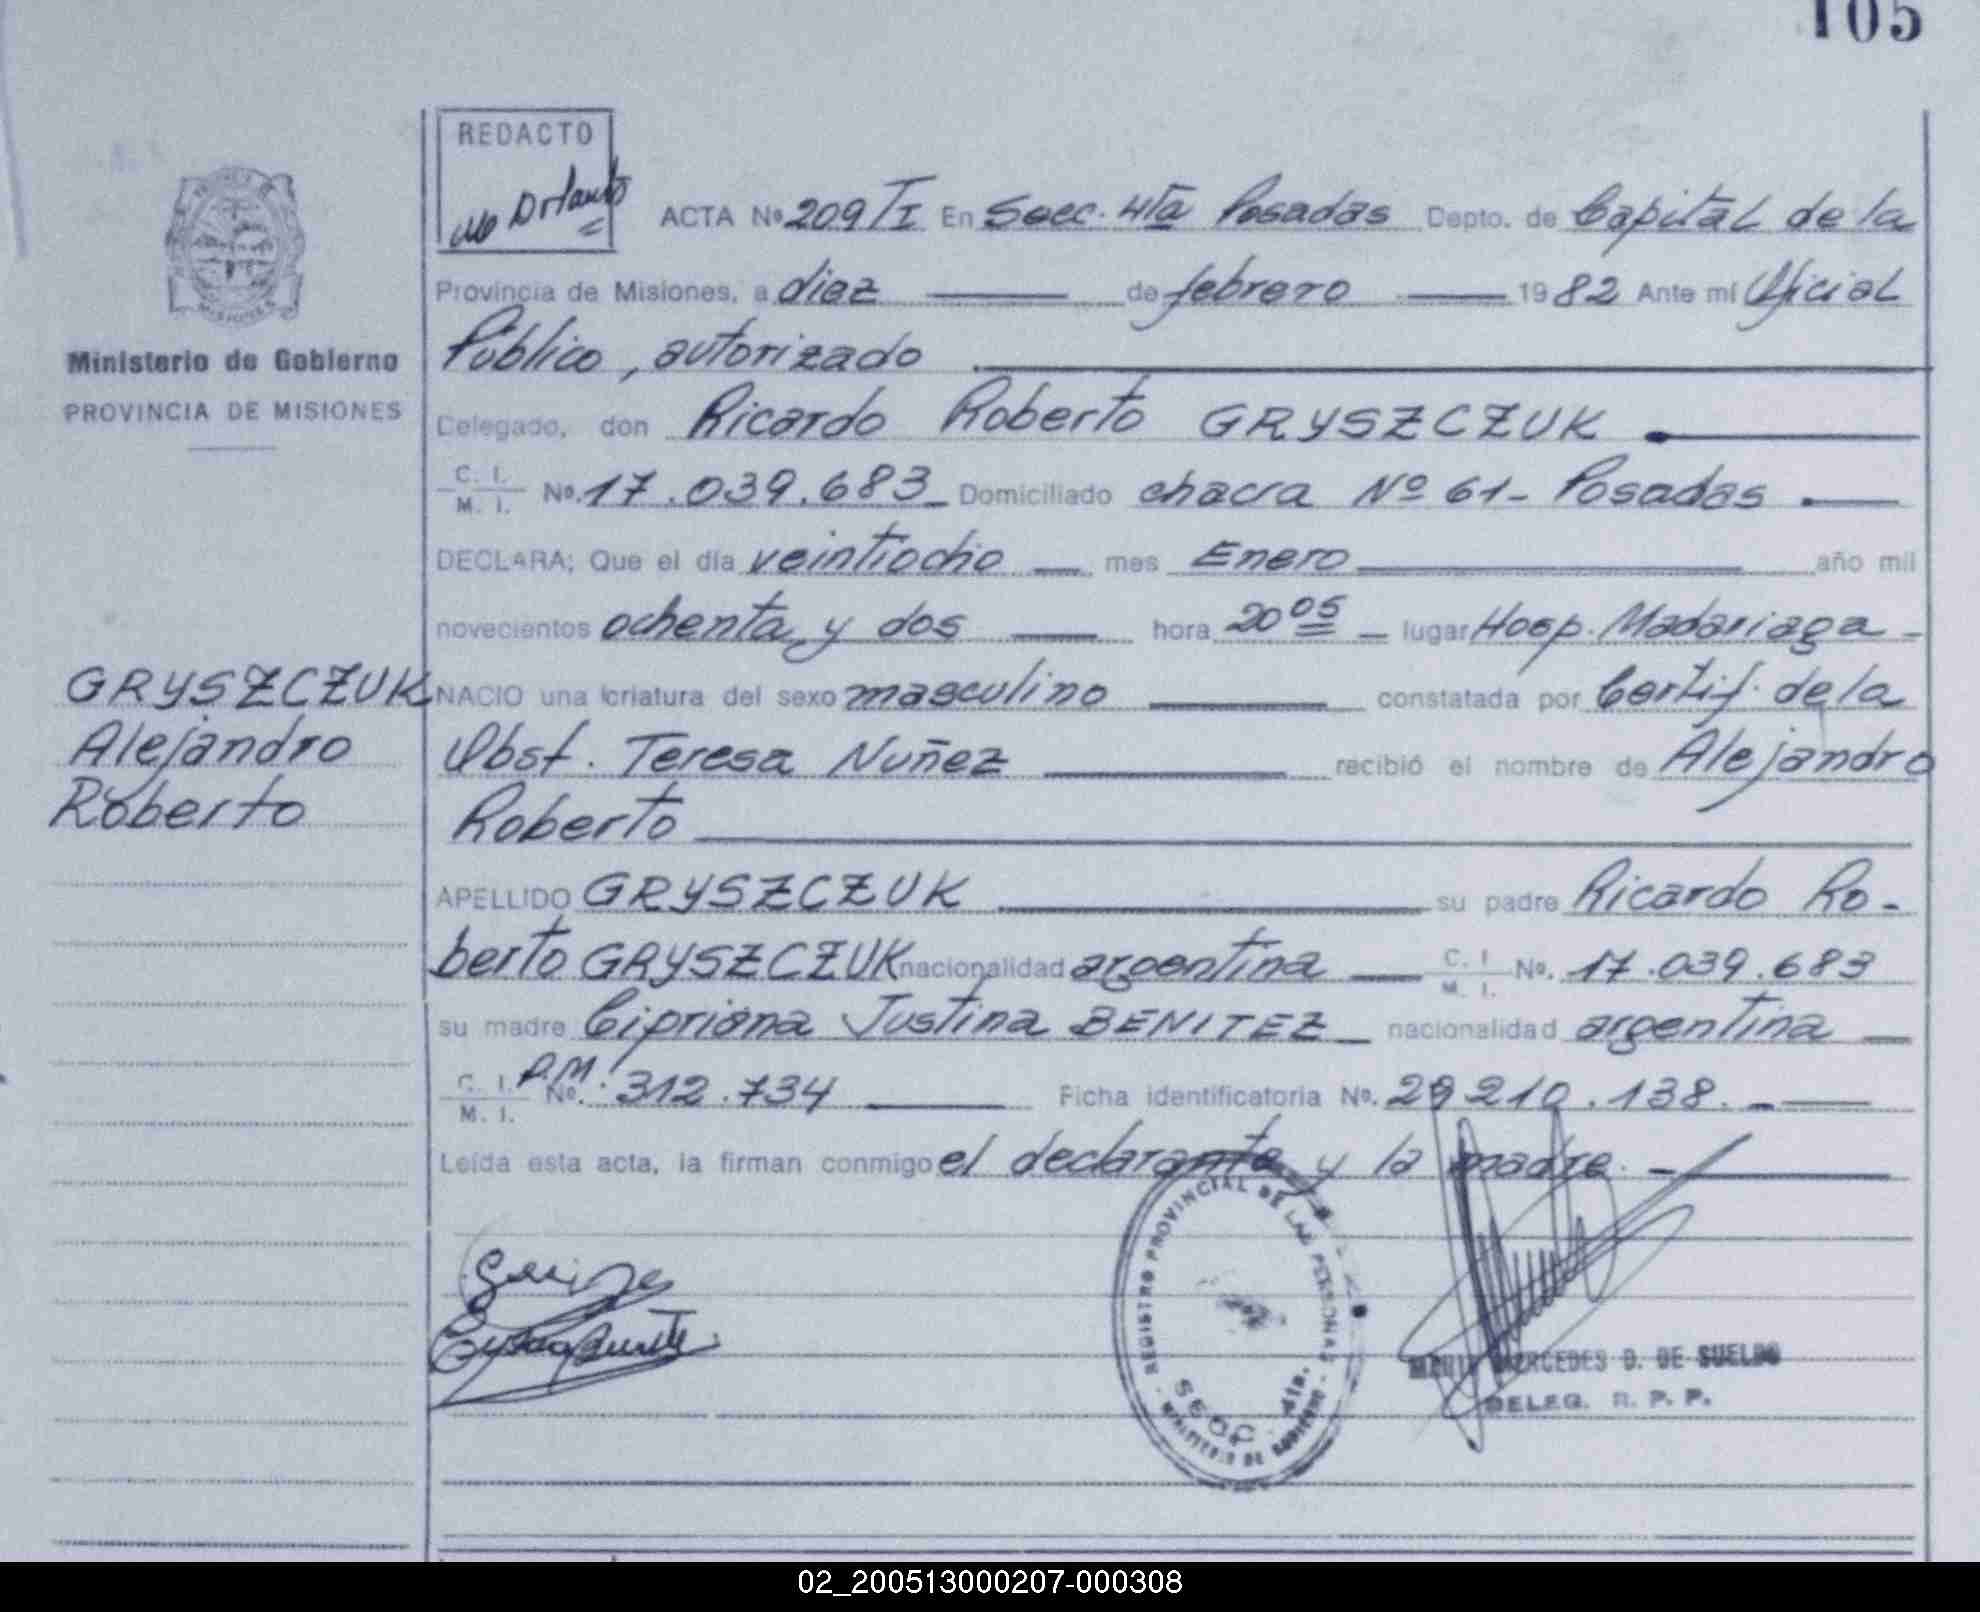 105
REDACTO
ACTA Nº 209/I En Secc. 4ta Posadas Depto. de Capital de la
Provincia de Misiones, a diez de febrero 1982 Ante mí Oficial
Ministerio de Gobierno
Público, autorizado
PROVINCIA DE MISIONES
Delegado, don Ricardo Roberto GRYSZCZUK
C. I.
M. I. Nº. 17.039.683 Domiciliado chacra Nº 61 - Posadas
DECLARA; Que el día veintiocho mes Enero año mil
novecientos ochenta y dos hora 20 05 lugar Hosp. Madariaga
GRYSZCZUK
Alejandro
Roberto
NACIO una criatura del sexo masculino constatada por Certif. de la
Obst. Teresa Nuñez recibió el nombre de Alejandro
Roberto
APELLIDO GRYSZCZUK su padre Ricardo Ro-
berto GRYSZCZUK nacionalidad argentina C. I. M. I. Nº. 17.039.683
su madre Cipriana Justina BENITEZ nacionalidad argentina
C. I. M. I. P.M. Nº. 312.734 Ficha identificatoria Nº. 29210.138.
Leída esta acta, la firman conmigo el declarante y la madre.
REGISTRO PROVINCIAL DE LAS PERSONAS
SECC. 4ta.
MINISTERIO DE GOBIERNO
MARIA MERCEDES D. DE SUELDO
DELEG. R. P. P.
02_200513000207-000308